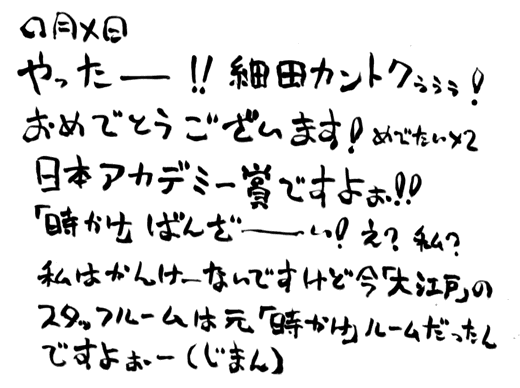 〇月×日
やったー!! 細田カントクぅぅぅ!
おめでとうございます! めでたい×2
日本アカデミー賞ですよぉ!!
「時かけ」ばんざーい! え? 私?
私はかんけーないですけど今「大江戸」の
スタッフルームは元「時かけ」ルームだったん
ですよぉー(じまん)